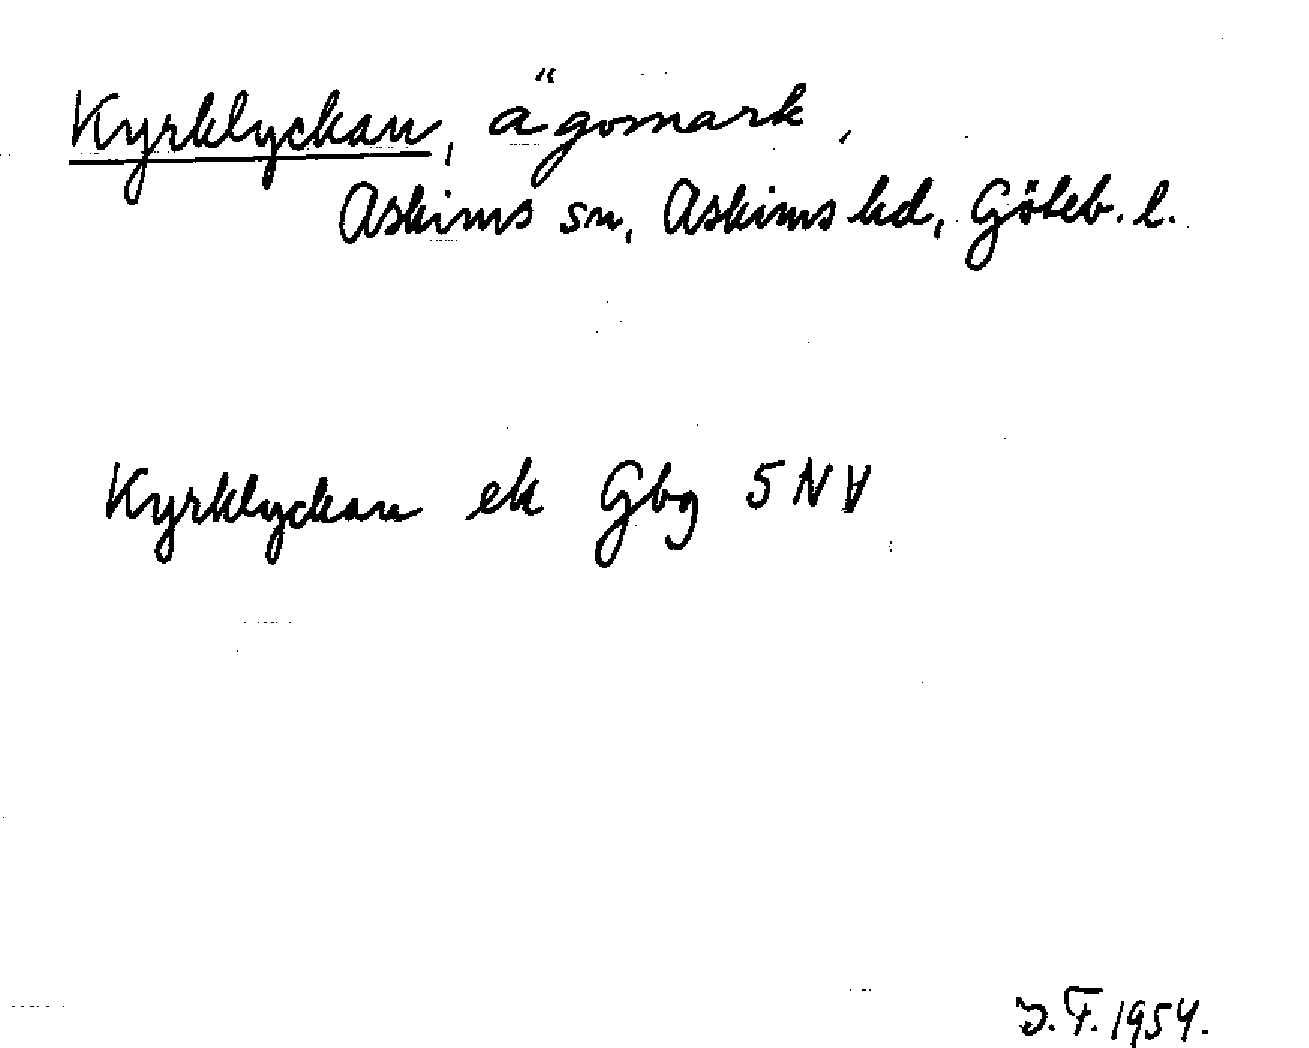 Kyrklyckan, ägomark,
Askims sn, Askims hd, Göteb. l.
Kyrklyckan ek Gbg 5 NV
J. F. 1954.